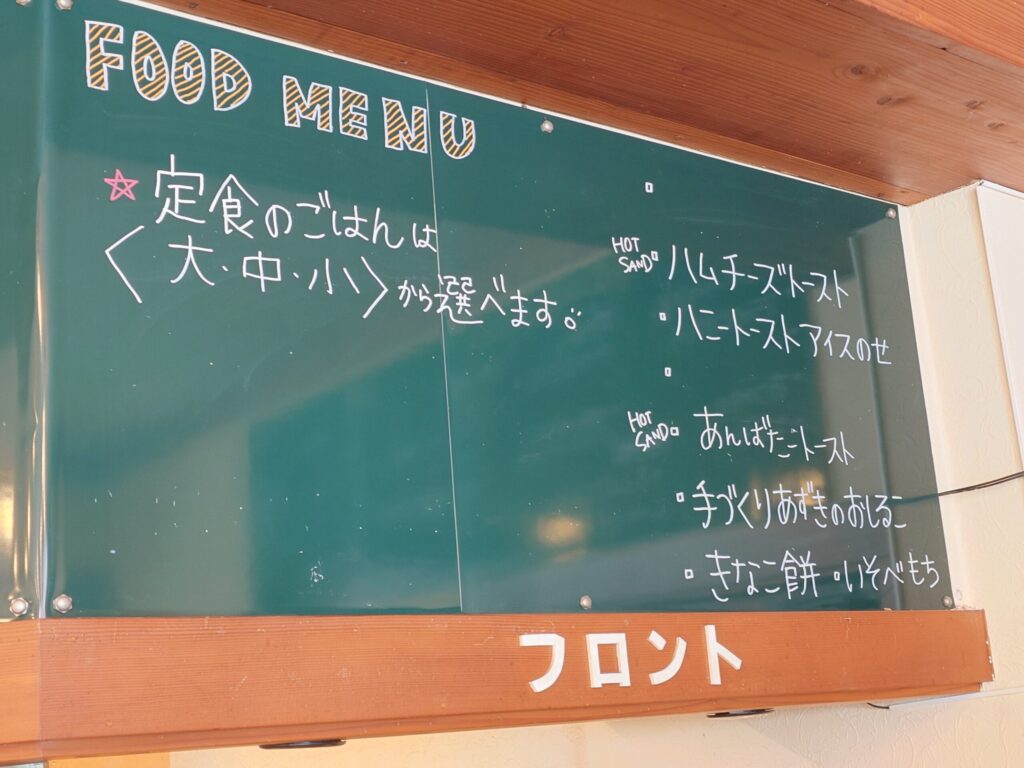 FOOD MENU
☆定食のごはんは
〈大・中・小〉から選べます。
HOT SAND ハムチーズトースト
ハニートーストアイスのせ
HOT SAND あんばたこトースト
手づくりあずきのおしるこ
きなこ餅・いそべもち
フロント